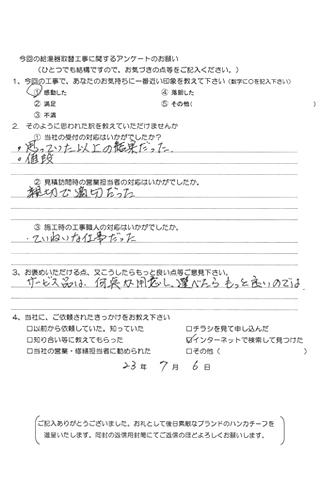 今回の給湯器取替工事に関するアンケートのお願い
(ひとつでも結構ですので、お気づきの点等をご記入ください。)
1、今回の工事で、あなたのお気持ちに一番近い印象を教えて下さい(数字に○を記入下さい)
① 感動した ④ 落胆した
② 満足 ⑤ その他( )
③ 不満
2. そのように思われた訳を教えていただけませんか
① 当社の受付の対応はいかがでしたか?
・思っていた以上の結果だった.
・値段
② 見積訪問時の営業担当者の対応はいかがでしたか。
親切で適切だった
③ 施工時の工事職人の対応はいかがでしたか。
・ていねいな仕事だった
3、お褒めいただける点、又こうしたらもっと良い点等ご意見下さい。
サービス品は、何点か用意し、選べたら もっと良いのでは
4、当社に、ご依頼されたきっかけをお教え下さい
□以前から依頼していた。知っていた □チラシを見て申し込んだ
□知り合い等に教えてもらった ☑インターネットで検索して見つけた
□当社の営業・修繕担当者に勧められた □その他( )
23 年 7 月 6 日
ご記入ありがとうございました。お礼として後日素敵なブランドのハンカチーフを
進呈いたします。同封の返信用封筒にてご返信のほどよろしくお願いします。